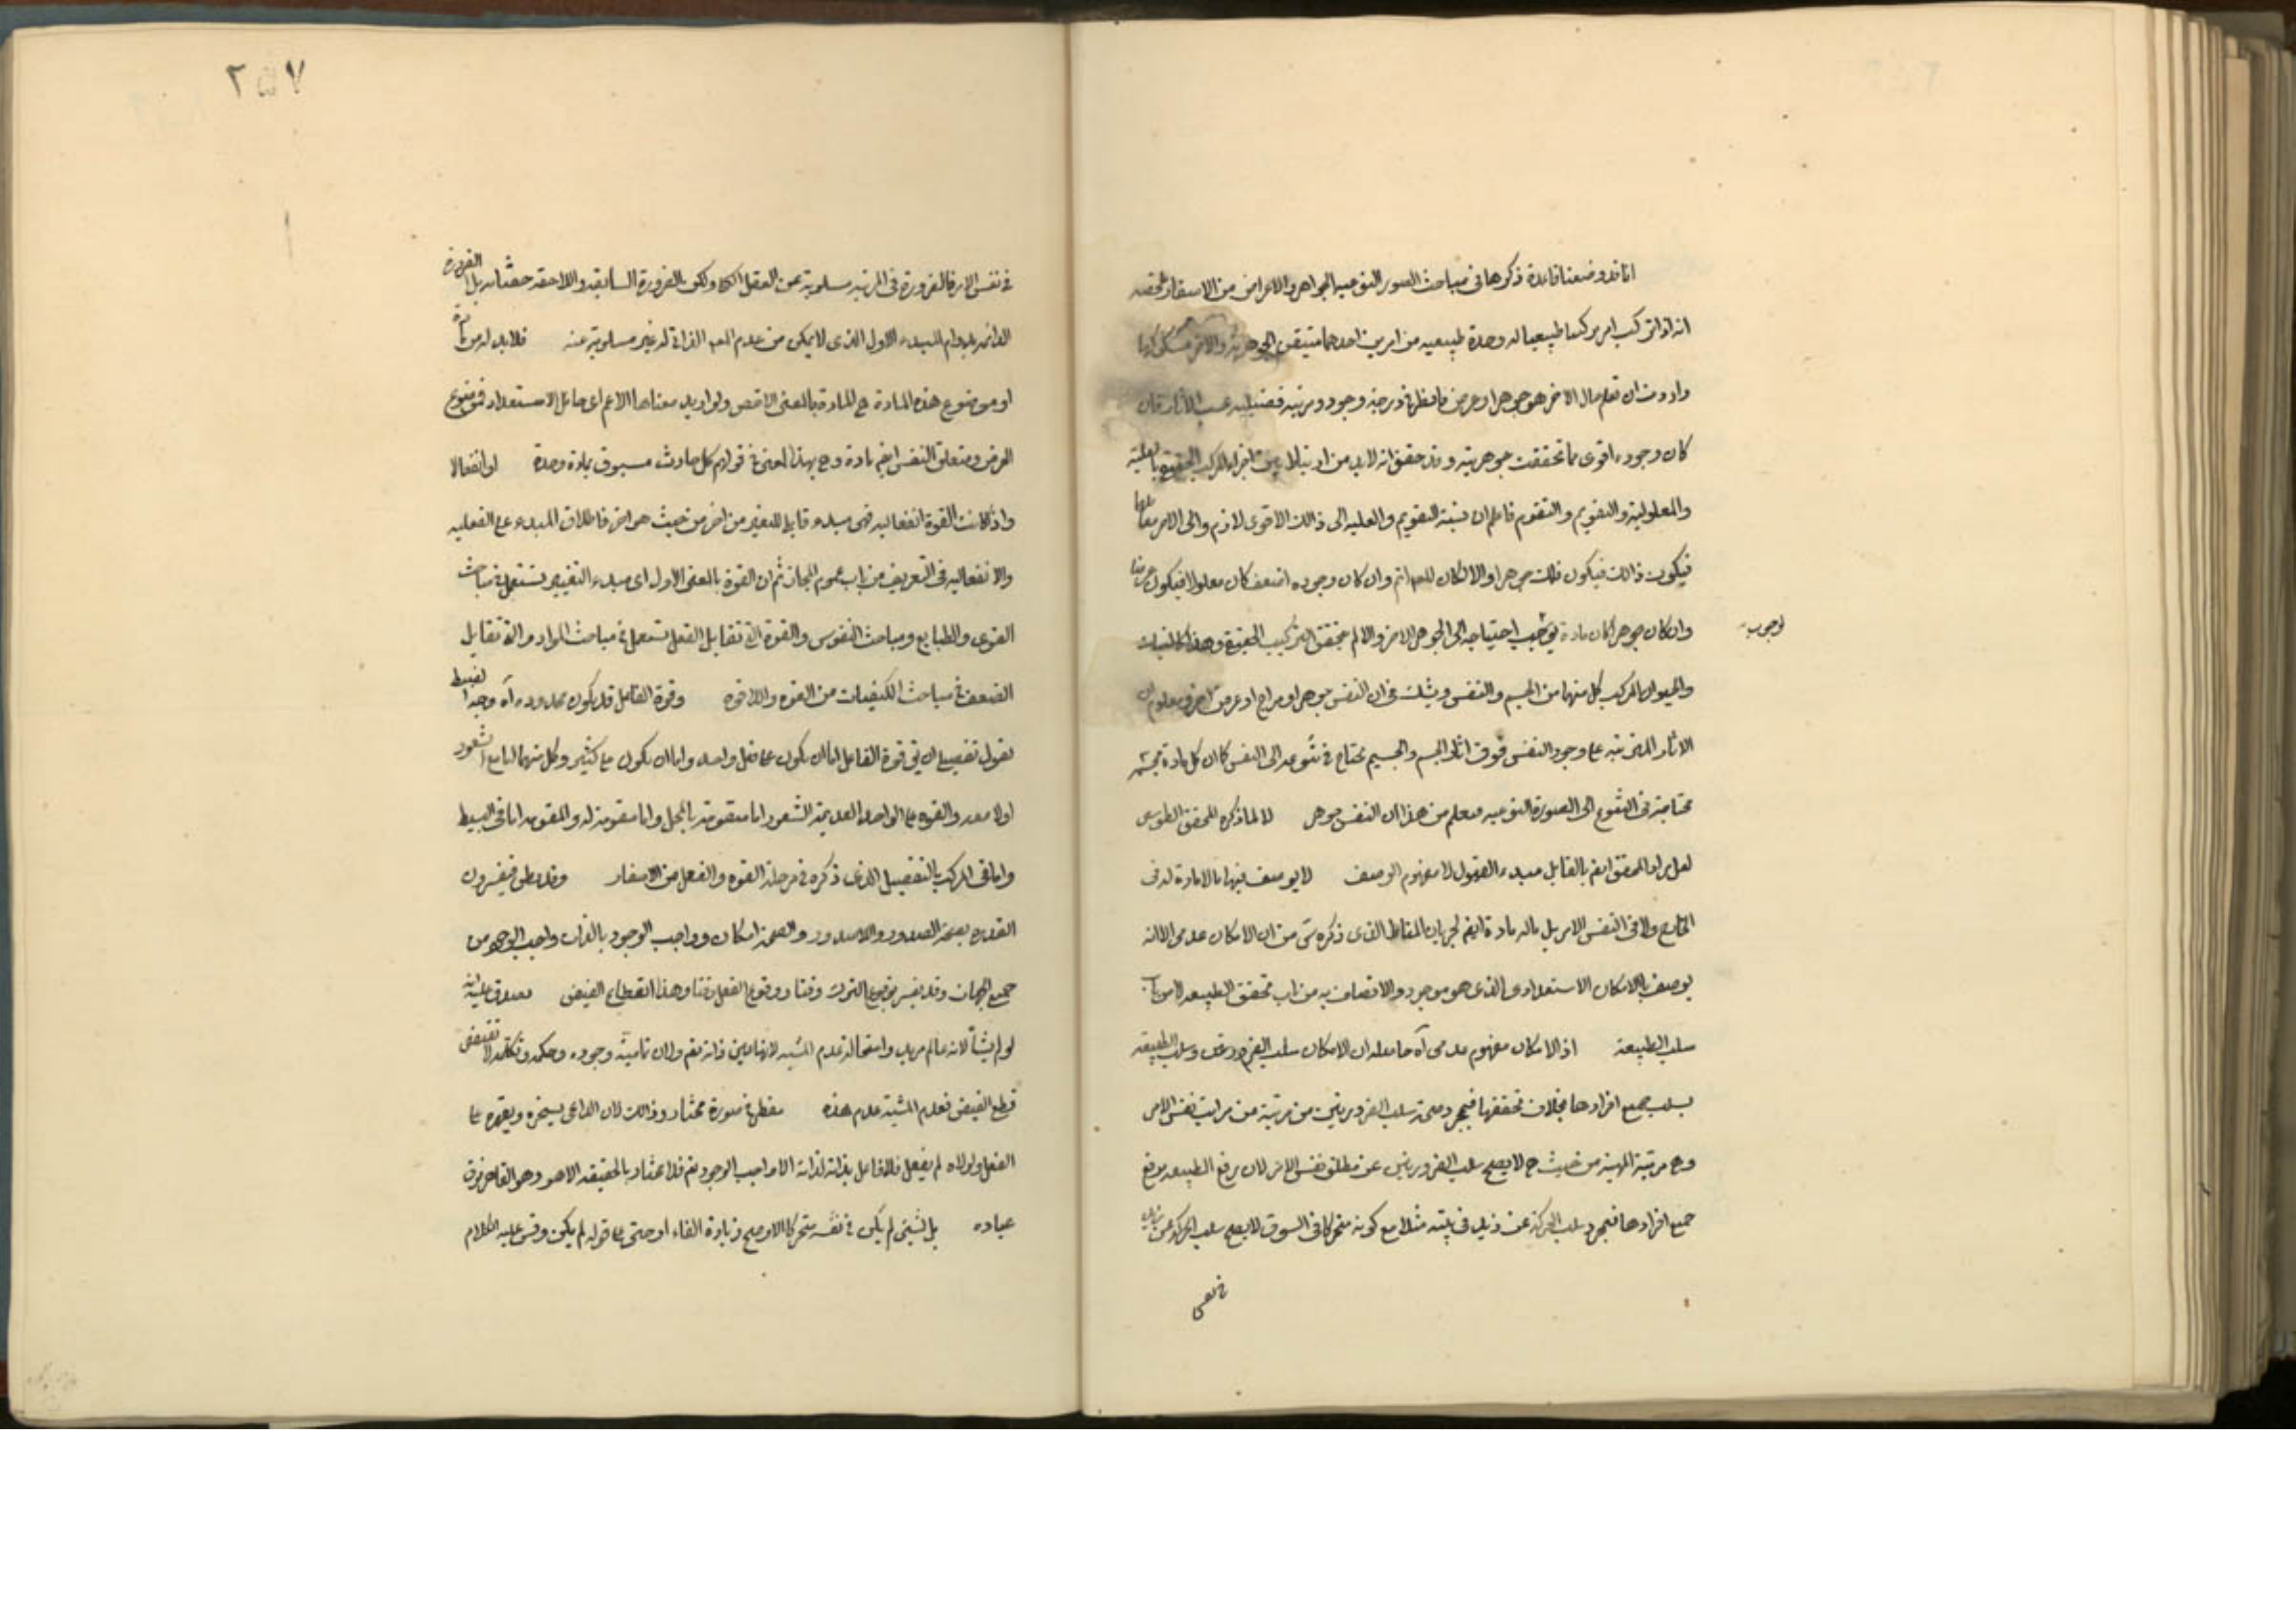 انا قد وضعنا قاعدة ذكرها في مباحث الصور النوعية الجواهر والاعراض من الاسفار ملخصه
انه اذا تركب امر مركبا طبيعيا له وحدة طبيعيه من امرين احدهما متيقن الجوهرية والاخر مشكوكها
واردت ان تعلم حال الاخر هو جوهر او عرض فانظر في درجة وجوده ومرتبة فضيلته حسب الآثار فان
كان وجوده اقوى مما تحققت جوهريته وقد حقق انه لابد من ارتباط بين اجزاء المركب الحقيقي بالعلية
والمعلولية والتقويم والتقوم فاعلم ان نسبة التقويم والعليه الى ذالك الاقوى لازم والى الاخر
فيكون ذالك فيكون ذالك جوهرا والا لكان المعلول اتم وان كان وجوده اضعف كان معلولا فيكون عرضا
وان كان جوهرا كان مادة لوجوب احتياجه الى الجوهر الاخر والا لم يتحقق التركيب الحقيقي وهذا كالنبات
لوجوب
والحيوان المركب كل منهما من الجسم والنفس ويشك في ان النفس جوهر او مزاج او عرض اخر ومعلوم ان
الاثار المترتبه على وجود النفس فوق اثار الجسم والجسم محتاج في تنوعه الى النفس كما ان كل مادة جسمية
محتاجة في التنوع الى الصورة النوعيه فعلم من هذا ان النفس جوهر لا لما ذكره المحقق الطوسى
لعل مراد المحقق ايضا بالقابل مبدء القبول لا مفهوم الوصف لا يوصف بها مالا مادة له في
الخارج ولا في النفس الامر بل ماله مادة ايضا لجريان المناط الذى ذكره من ان الامكان عدمى الا انه
يوصف بالامكان الاستعدادى الذى هو موجود والاتصاف به من باب تحقق الطبيعه لا من باب
سلب الطبيعة اذ الامكان مفهوم عدمى آه حاصله ان الامكان سلب الضرورتين وسلب الطبيعة
بسلب جميع افرادها بخلاف تحققها فبمجرد صحة سلب الضرورتين من مرتبة من مراتب نفس الامر
وهي مرتبة المهية من حيث هي لا يصح سلب الضرورتين عن مطلق نفس الامر لان رفع الطبيعه برفع
جميع افرادها فبمجرد سلب الحركة عن زيد في بيته مثلا مع كونه متحركا في السوق لا يصح سلب الحركة عن زيد
في نفس
٢٥٧
في نفس الامر فالضرورة في المرتبه مسلوبة عن العقل الكل ولكن الضرورة السابقه واللاحقه حقتاه بل الضرورة
الدائمه بدوام المبدء الاول الذى لا يمكن من عدم الذاتى له غير مسلوبة عنه فلابد له من مادة
او موضوع هذه المادة هي المادة بالمعنى الاخص ولو اريد معناها الاعم اى حامل الاستعداد فموضوع
العرض ومتعلق النفس ايضا مادة وهي بهذا المعنى في قولهم كل حادث مسبوق بمادة ومدة او انفعالا
واذا كانت القوة انفعاليه فهى مبدء قابل للتغير من اخر من حيث هو اخر فاطلاق المبدء على الفعليه
والانفعاليه في التعريف من باب عموم المجاز ثم ان القوة بالمعنى الاول اى مبدء التغيير تستعمل في مباحث
القوى والطبايع ومباحث النفوس والقوة التى تقابل الفعل تستعمل في مباحث المواد والتى تقابل
الضعف في مباحث الكيفيات من القوه واللاقوه وقوة الفاعل قد يكون محدوده آه وجه الضبط
نقول تفصيلا ان قوة الفاعل اما ان يكون على فعل واحد واما ان يكون على كثير وكل منهما اما مع الشعور
اولا معه والقوه على الواحد العديمة الشعور اما متقومة بالمحل واما مقومة له والمقومه اما في البسيط
واما في المركب بالتفصيل الذى ذكره في مرحلة القوه والفعل من الاسفار وقد يظن فيفسرون
القدره بصحة الصدور واللاصدور والصحة امكان وواجب الوجود بالذات واجب الوجود من
جميع الجهات وقد يفسر بوقوع الترك وقتا ووقوع الفعل وقتا وهذا انقطاع الفيض يصدق عليه انه
لو لم يشأ لانه عالم مريد واستحالة عدم المشيه لانها عين ذاته نعم ولان تامية وجوده وحكمه وكلمه لا تقتضى
قطع الفيض فعدم المشية عدم هذه مضطر في صورة مختار وذالك لان الداعى يسخره ويقهره على
الفعل ولولاه لم يفعل فلا فاعل بذاته لذاته الا واجب الوجود نعم فلا مختار بالحقيقه الا هو وهو القاهر فوق
عباده بل شئ لم يكن في نفسه متحركا الاوضح زيادة الفاء او حتى على قوله لم يكن وقس عليه الكلام